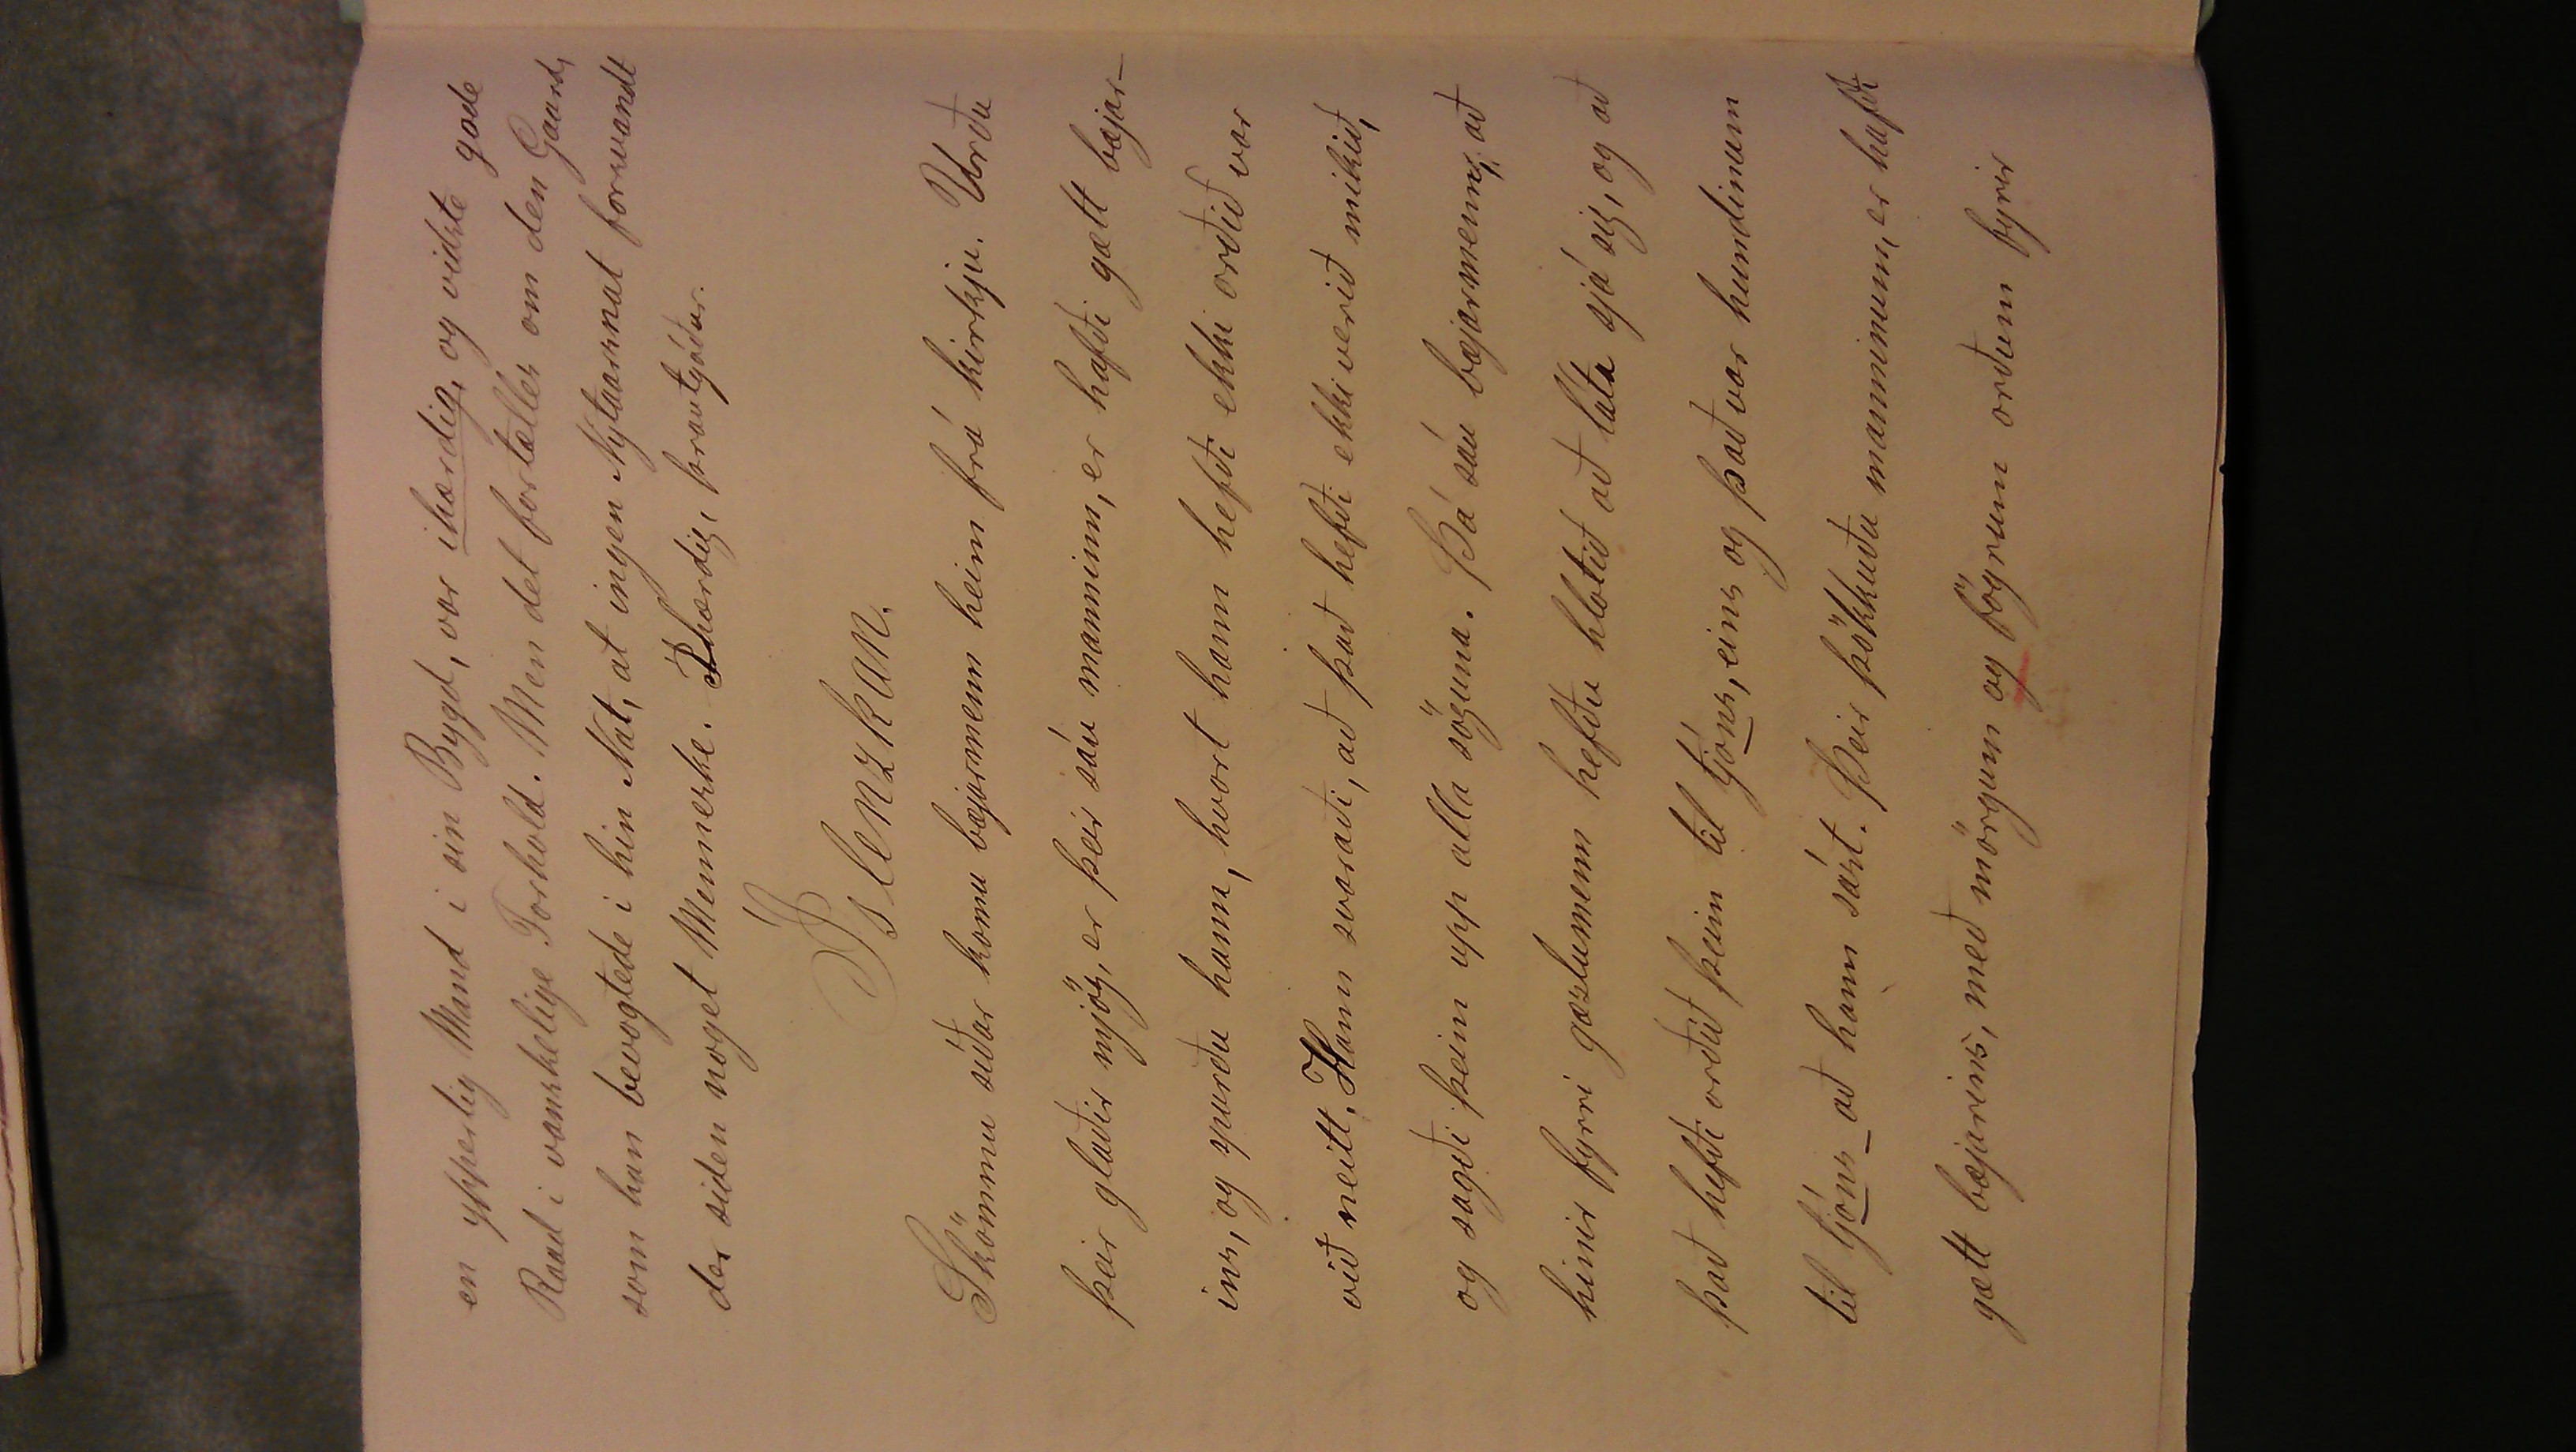 en ypperlig Mand i sin Bygd, var ihærdig, og vidste gode
Raad i vanskelige Forhold. Men det fortælles om den Gaard,
som han bevogtede i hin Nat, at ingen Nytaarsnat forsvandt
der siden noget Menneske. Ihærdig, þrautgóður.
Íslenzkan.
Skömmu síðar komu bæjarmenn heim frá kirkju. Urðu
þeir glaðir mjög, er þeir sáu manninn, er hafði gætt bæjar-
ins, og spurðu hann, hvort hann hefði ekki orðið var
við neitt. Hann svaraði, að það hefði ekki verið mikið,
og sagði þeim upp alla söguna. Þá sáu bæjarmenn, að
hinir fyrri gæzlumenn hefðu hlotið að láta sjá sig, og að
það hefði orðið þeim til tjóns, eins og það var hundinum
til tjóns að hann sást. Þeir þökkuðu manninum, er hafði
gætt bæjarins, með mörgum og fögrum orðum fyrir